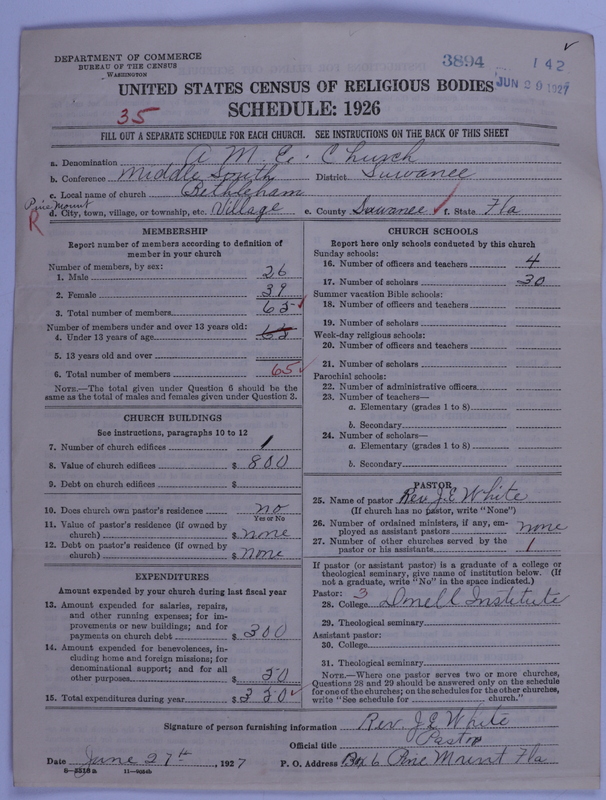 DEPARTMENT OF COMMERCE
BUREAU OF THE CENSUS
WASHINGTON
3894 142
JUN 29 1927
UNITED STATES CENSUS OF RELIGIOUS BODIES
35
SCHEDULE: 1926
FILL OUT A SEPARATE SCHEDULE FOR EACH CHURCH. SEE INSTRUCTIONS ON THE BACK OF THIS SHEET
a. Denomination A. M. E. Church
b. Conference Middle South District Suwanee
c. Local name of church Bethleham
Pine Mount
R d. City, town, village, or township, etc. Village e. County Suwanee f. State Fla
MEMBERSHIP
Report number of members according to definition of
member in your church
Number of members, by sex:
1. Male 26
2. Female 39
3. Total number of members 65
Number of members under and over 13 years old:
4. Under 13 years of age 65
5. 13 years old and over
6. Total number of members 65
NOTE.—The total given under Question 6 should be the
same as the total of males and females given under Question 3.
CHURCH BUILDINGS
See instructions, paragraphs 10 to 12
7. Number of church edifices 1
8. Value of church edifices $ 800
9. Debt on church edifices $
10. Does church own pastor's residence no
Yes or No
11. Value of pastor's residence (if owned by
church) $ none
12. Debt on pastor's residence (if owned by
church) $ none
EXPENDITURES
Amount expended by your church during last fiscal year
13. Amount expended for salaries, repairs,
and other running expenses; for im-
provements or new buildings; and for
payments on church debt $ 300
14. Amount expended for benevolences, in-
cluding home and foreign missions; for
denominational support; and for all
other purposes $ 50
15. Total expenditures during year $ 350
CHURCH SCHOOLS
Report here only schools conducted by this church
Sunday schools:
16. Number of officers and teachers 4
17. Number of scholars 30
Summer vacation Bible schools:
18. Number of officers and teachers
19. Number of scholars
Week-day religious schools:
20. Number of officers and teachers
21. Number of scholars
Parochial schools:
22. Number of administrative officers
23. Number of teachers—
a. Elementary (grades 1 to 8)
b. Secondary
24. Number of scholars—
a. Elementary (grades 1 to 8)
b. Secondary
PASTOR
25. Name of pastor Rev. J. E White
(If church has no pastor, write "None")
26. Number of ordained ministers, if any, em-
ployed as assistant pastors none
27. Number of other churches served by the
pastor or his assistants 1
If pastor (or assistant pastor) is a graduate of a college or
theological seminary, give name of institution below. (If
not a graduate, write "No" in the space indicated.)
Pastor: 3
28. College Institute
29. Theological seminary
Assistant pastor:
30. College
31. Theological seminary
NOTE.—Where one pastor serves two or more churches,
Questions 28 and 29 should be answered only on the schedule
for one of the churches; on the schedules for the other churches,
write "See schedule for church."
Signature of person furnishing information Rev. J. E White
Official title Pastor
Date June 27th, 1927 P. O. Address Box 6 Pine Mount Fla